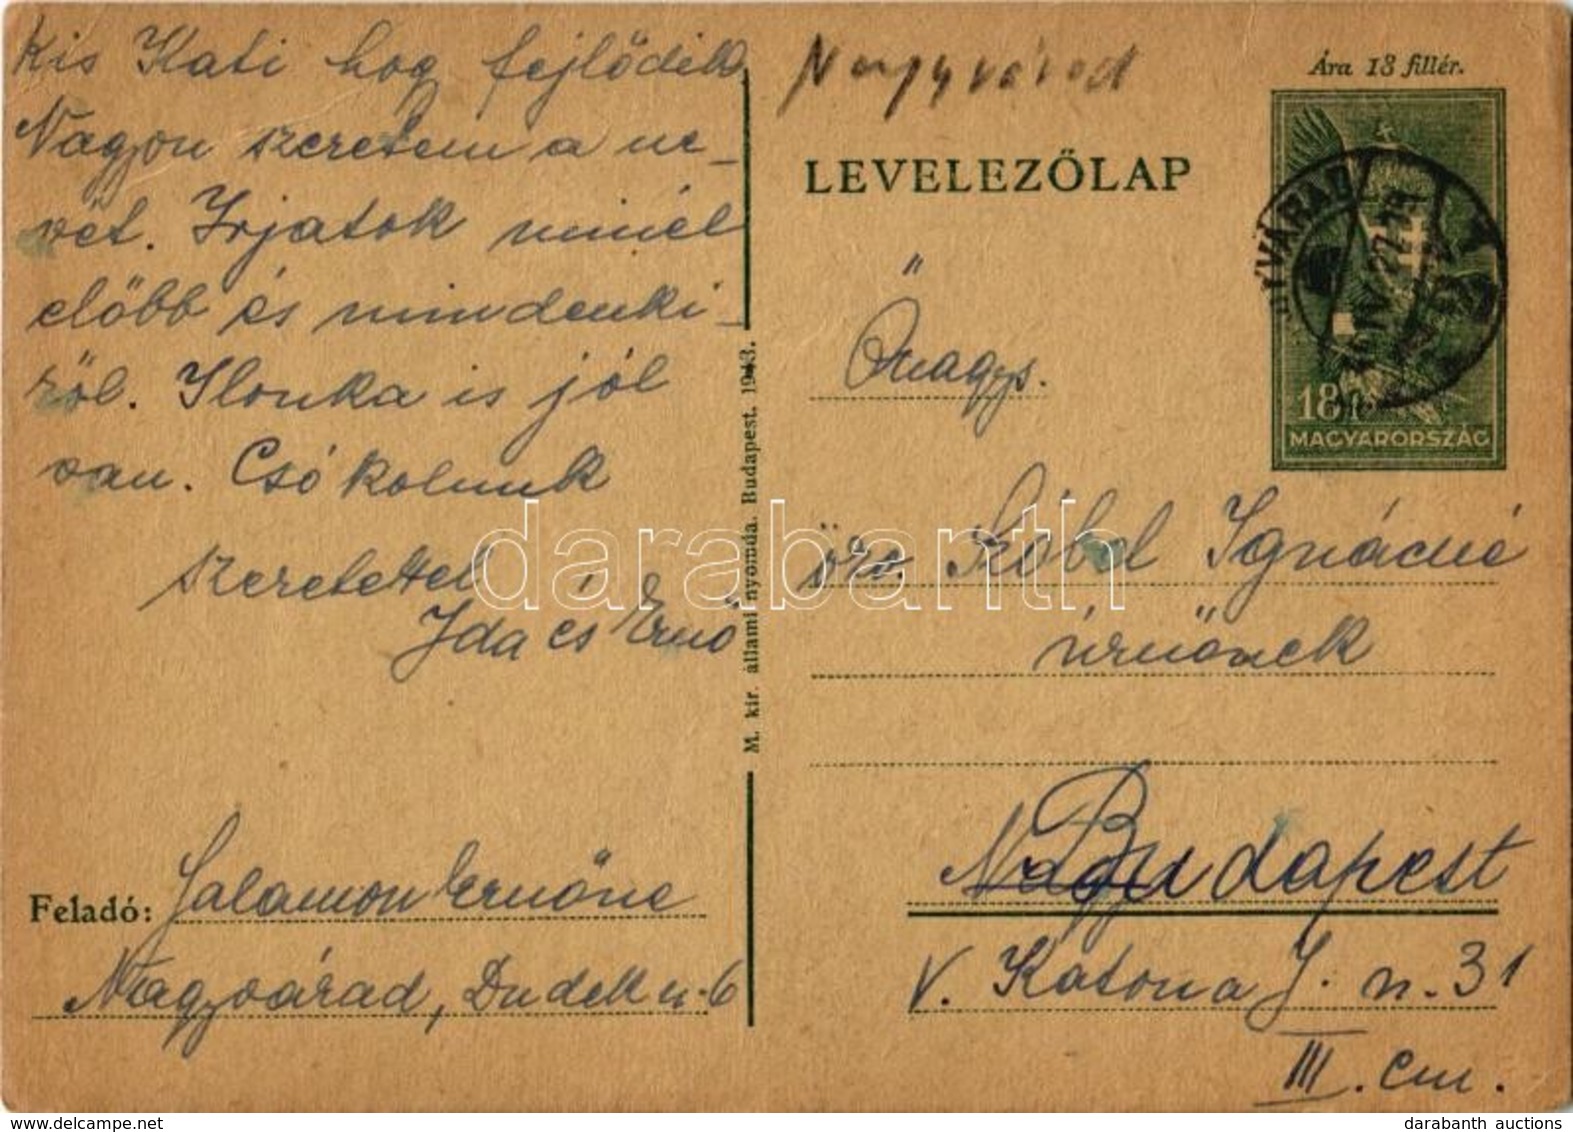 Kis Kati hog fejlődik.
Nagyon szeretem a ne-
vét. Irjatok minél
előbb és mindenki-
ről. Ilonka is jól
van. Csókolunk
szeretettel
Ida és Ernő
Feladó: Salamon Ernőné
Nagyvárad, Dudek u. 6
M. kir. állami nyomda. Budapest. 1943.
Nagyvárad
LEVELEZŐLAP
Ára 18 fillér.
18 f
MAGYARORSZÁG
Őnagys.
özv. Szóbel Ignácné
úrnőnek
Budapest
V. Katona J. u. 31
III. em.
darabanth
www.delcampe.net
darabanth auctions